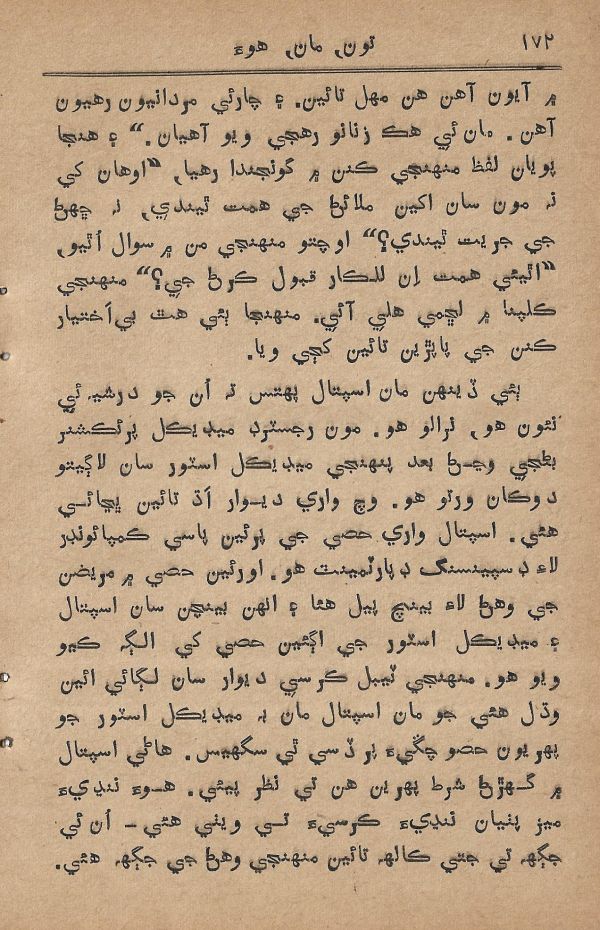 تون، مان، هوءَ ١٧٢
۾ آيون آهن هن مهل تائين. ۽ چارئي مردانيون رهيون
آهن. مان ئي هڪ زنانو رهجي ويو آهيان.“ ۽ هنجا
پويان لفظ منهنجي ڪنن ۾ گونجندا رهيا، “اوهان کي
نہ مون سان اکين ملائڻ جي همت ٿيندي، نہ ڇهڻ
جي جريت ٿيندي؟“ اوچتو منهنجي من ۾ سوال اُٿيو،
“اٿيئي همت اِن للڪار قبول ڪرڻ جي؟“ منهنجي
ڪلپنا ۾ لڇمي هلي آئي. منهنجا ٻئي هٿ بي‌اختيار
ڪنن جي پاپڙين تائين کڄي ويا.
ٻئي ڏينهن مان اسپتال پهتس تہ اُن جو درشيہ ئي
نئون هو، نرالو هو. مون رجسٽرڊ ميڊيڪل پرئڪٽشنر
بڻجي وڃڻ بعد پنهنجي ميڊيڪل اسٽور سان لاڳيتو
دوڪان ورتو هو. وچ واري ديوار اڌ تائين ڀڃائي
هئي. اسپتال واري حصي جي پرئين پاسي ڪمپائونڊر
لاءِ ڊسپينسنگ ڊپارٽمينٽ هو. اورئين حصي ۾ مريضن
جي وهڻ لاءِ بينچ پيل هئا ۽ انهن بينچن سان اسپتال
۽ ميڊيڪل اسٽور جي اڳئين حصي کي الڳ ڪيو
ويو هو. منهنجي ٽيبل ڪرسي ديوار سان لڳائي ائين
وڌل هئي جو مان اسپتال مان بہ ميڊيڪل اسٽور جو
ٻهريون حصو چڱيءَ پر ڏسي ٿي سگهيس. هاڻي اسپتال
۾ گهڙڻ شرط پهرين هن تي نظر پيئي. هوءَ ننڍيءَ
ميز پٺيان ننڍيءَ ڪرسيءَ تي ويٺي هئي - اُن ئي
جڳهہ تي جتي ڪالهہ تائين منهنجي وهڻ جي جڳهہ هئي.